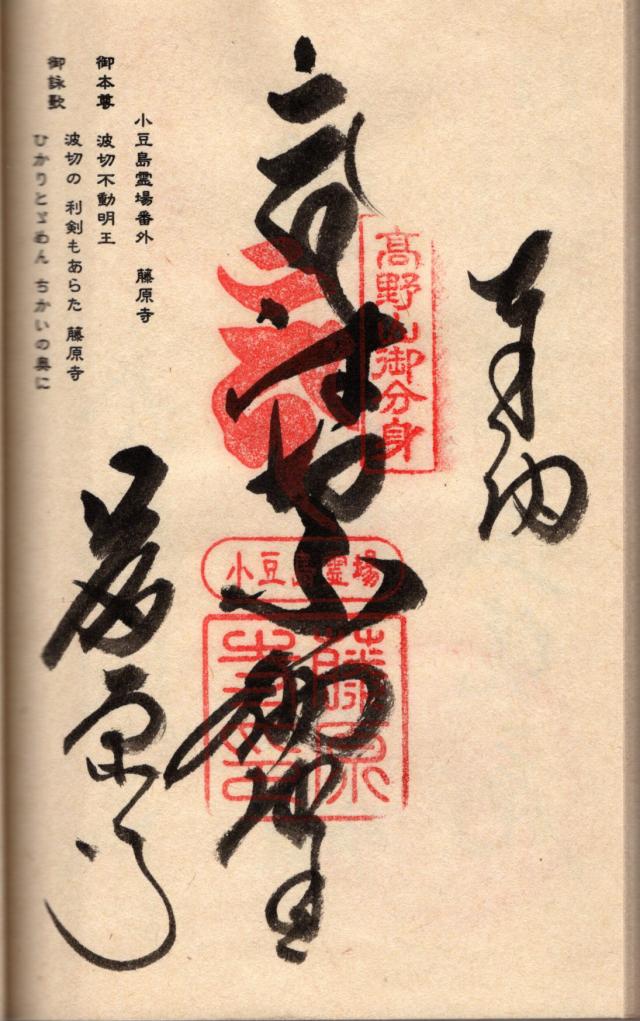 奉納
髙野山御分身
小豆島霊場
藤原
藤原寺
小豆島霊場番外 藤原寺
御本尊 波切不動明王
御詠歌 波切の 利剣もあらた 藤原寺
ひかりとゞめん ちかいの奥に